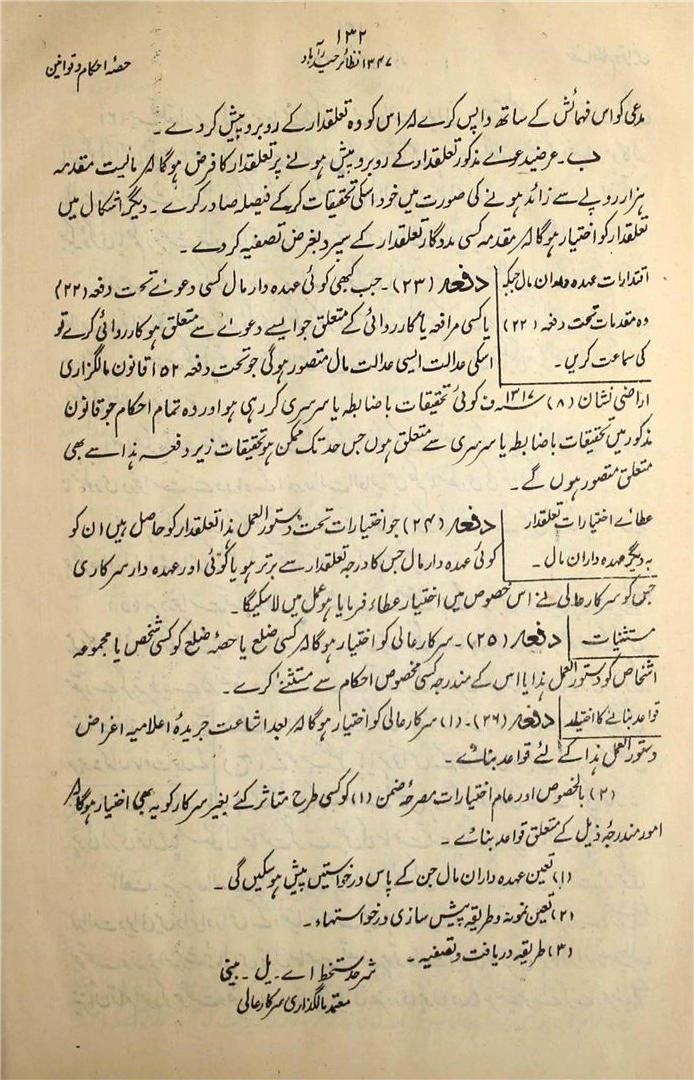 ۱۳۲
۱۳۴۷ نظائر حیدرآباد
حصۂ احکام و قوانین
مدعی کو اس فہمائش کے ساتھ واپس کرے کہ اس کو وہ تعلقدار کے روبرو پیش کر دے ۔
ب ۔ عرضیدعوے مذکور تعلقدار کے روبرو پیش ہونے پر تعلقدار کا فرض ہوگا کہ مالیت مقدمہ
ہزار روپے سے زائد ہونے کی صورت میں خود اسکی تحقیقات کرکے فیصلہ صادر کرے ۔ دیگر اشکال میں
تعلقدار کو اختیار ہوگا کہ مقدمہ کسی مددگار تعلقدار کے سپرد بغرض تصفیہ کر دے ۔
اقتدارات عہدہ داران مال جبکہ
وہ مقدمات تحت دفعہ (۲۲)
کی سماعت کریں ۔
دفعہ (۲۳) ۔ جب کبھی کوئی عہدہ دار مال کسی دعوے تحت دفعہ (۲۲)
یا کسی مرافعہ یا کارروائی کے متعلق جو ایسے دعوے سے متعلق ہو کارروائی کرے تو
اسکی عدالت ایسی عدالت مال متصور ہوگی جو تحت دفعہ ۱۵۲ قانون مالگزاری
اراضی نشان (۸) ۱۳۱۷ ف کوئی تحقیقات باضابطہ یا سرسری کر رہی ہو اور وہ تمام احکام جو قانون
مذکور میں تحقیقات باضابطہ یا سرسری سے متعلق ہوں جس حد تک ممکن ہو تحقیقات زیر دفعہ ہذا سے بھی
متعلق متصور ہوں گے ۔
عطائے اختیارات تعلقدار
بہ دیگر عہدہ داران مال ۔
دفعہ (۲۴) جو اختیارات تحت دستور العمل ہذا تعلقدار کو حاصل ہیں ان کو
کوئی عہدہ دار مال جس کا درجہ تعلقدار سے برتر ہو یا کوئی اور عہدہ دار سرکاری
جس کو سرکار عالی نے اس خصوص میں اختیار عطاء فرمایا ہو عمل میں لا سکیگا ۔
مستثنیات
دفعہ (۲۵) ۔ سرکار عالی کو اختیار ہوگا کہ کسی ضلع یا حصہ ضلع کو کسی شخص یا مجموعہ
اشخاص کو دستور العمل ہذا یا اس کے مندرجہ کسی مخصوص احکام سے مستثنےٰ کرے ۔
قواعد بنانے کا اختیار
دفعہ (۲۶) ۔ (۱) سرکار عالی کو اختیار ہوگا کہ بعد اشاعت جریدۂ اعلامیہ اغراض
دستور العمل ہذا کے لئے قواعد بنائے ۔
(۲) بالخصوص اور عام اختیارات مصرحہ ضمن (۱) کو کسی طرح متاثر کئے بغیر سرکار کو یہ بھی اختیار ہوگا کہ
امور مندرجہ ذیل کے متعلق قواعد بنائے ۔
(۱) تعین عہدہ داران مال جن کے پاس درخواستیں پیش ہو سکیں گی ۔
(۲) تعین نمونہ و طریقہ پیش سازی درخواستہاء ۔
(۳) طریقہ دریافت و تصفیہ ۔
شرحدستخط اے ۔ یل ۔ بینی
معتمد مالگزاری سرکار عالی